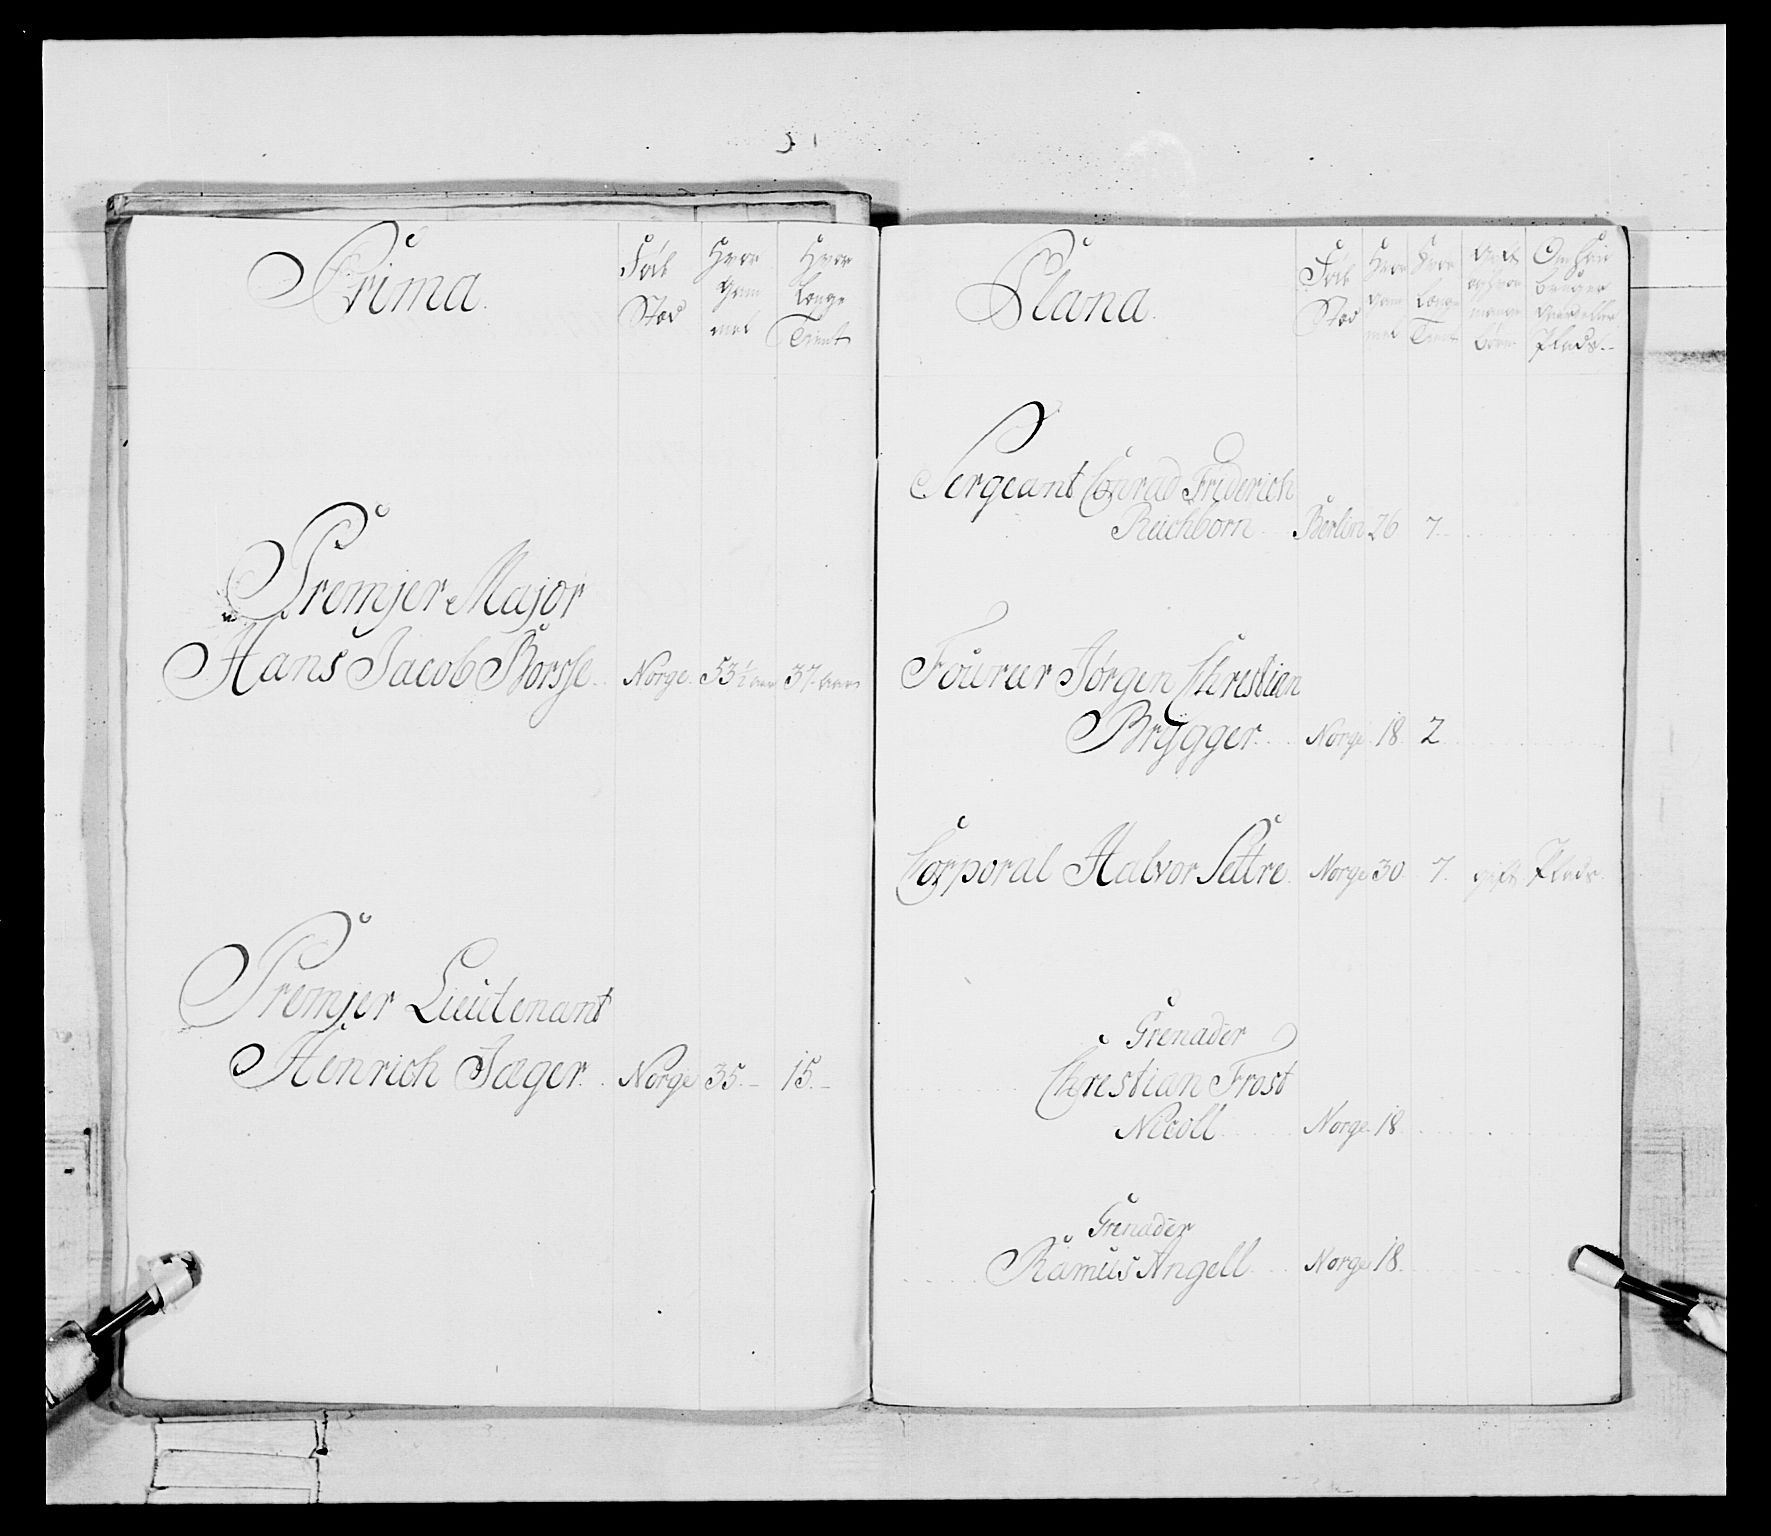 Prima.
Föd Stæd
Hvor Gammel
Hvor Længe Tient
Premjer Major
Hans Jacob Borsse Norge. 53 1/2 aar 37 aar
Premjer Lieutenant
Henrich Jæger. Norge 35. 15.
Plana.
Föd Stæd
Hvor gammel
Hvor Længe Tient
gift og hvor mange börn
Om han bruger gaard eller Plads.
Sergeant Conrad Friderich
Reichborn Berlin 26 7.
Fourier Jörgen Christian
Brÿgger. Norge 18. 2
Corporal Halvor Settre. Norge 30. 7. gift Plads.
Grenader
Christian Frost
Nicoll Norge 18.
Grenader
Ramus Angell. Norge 18.